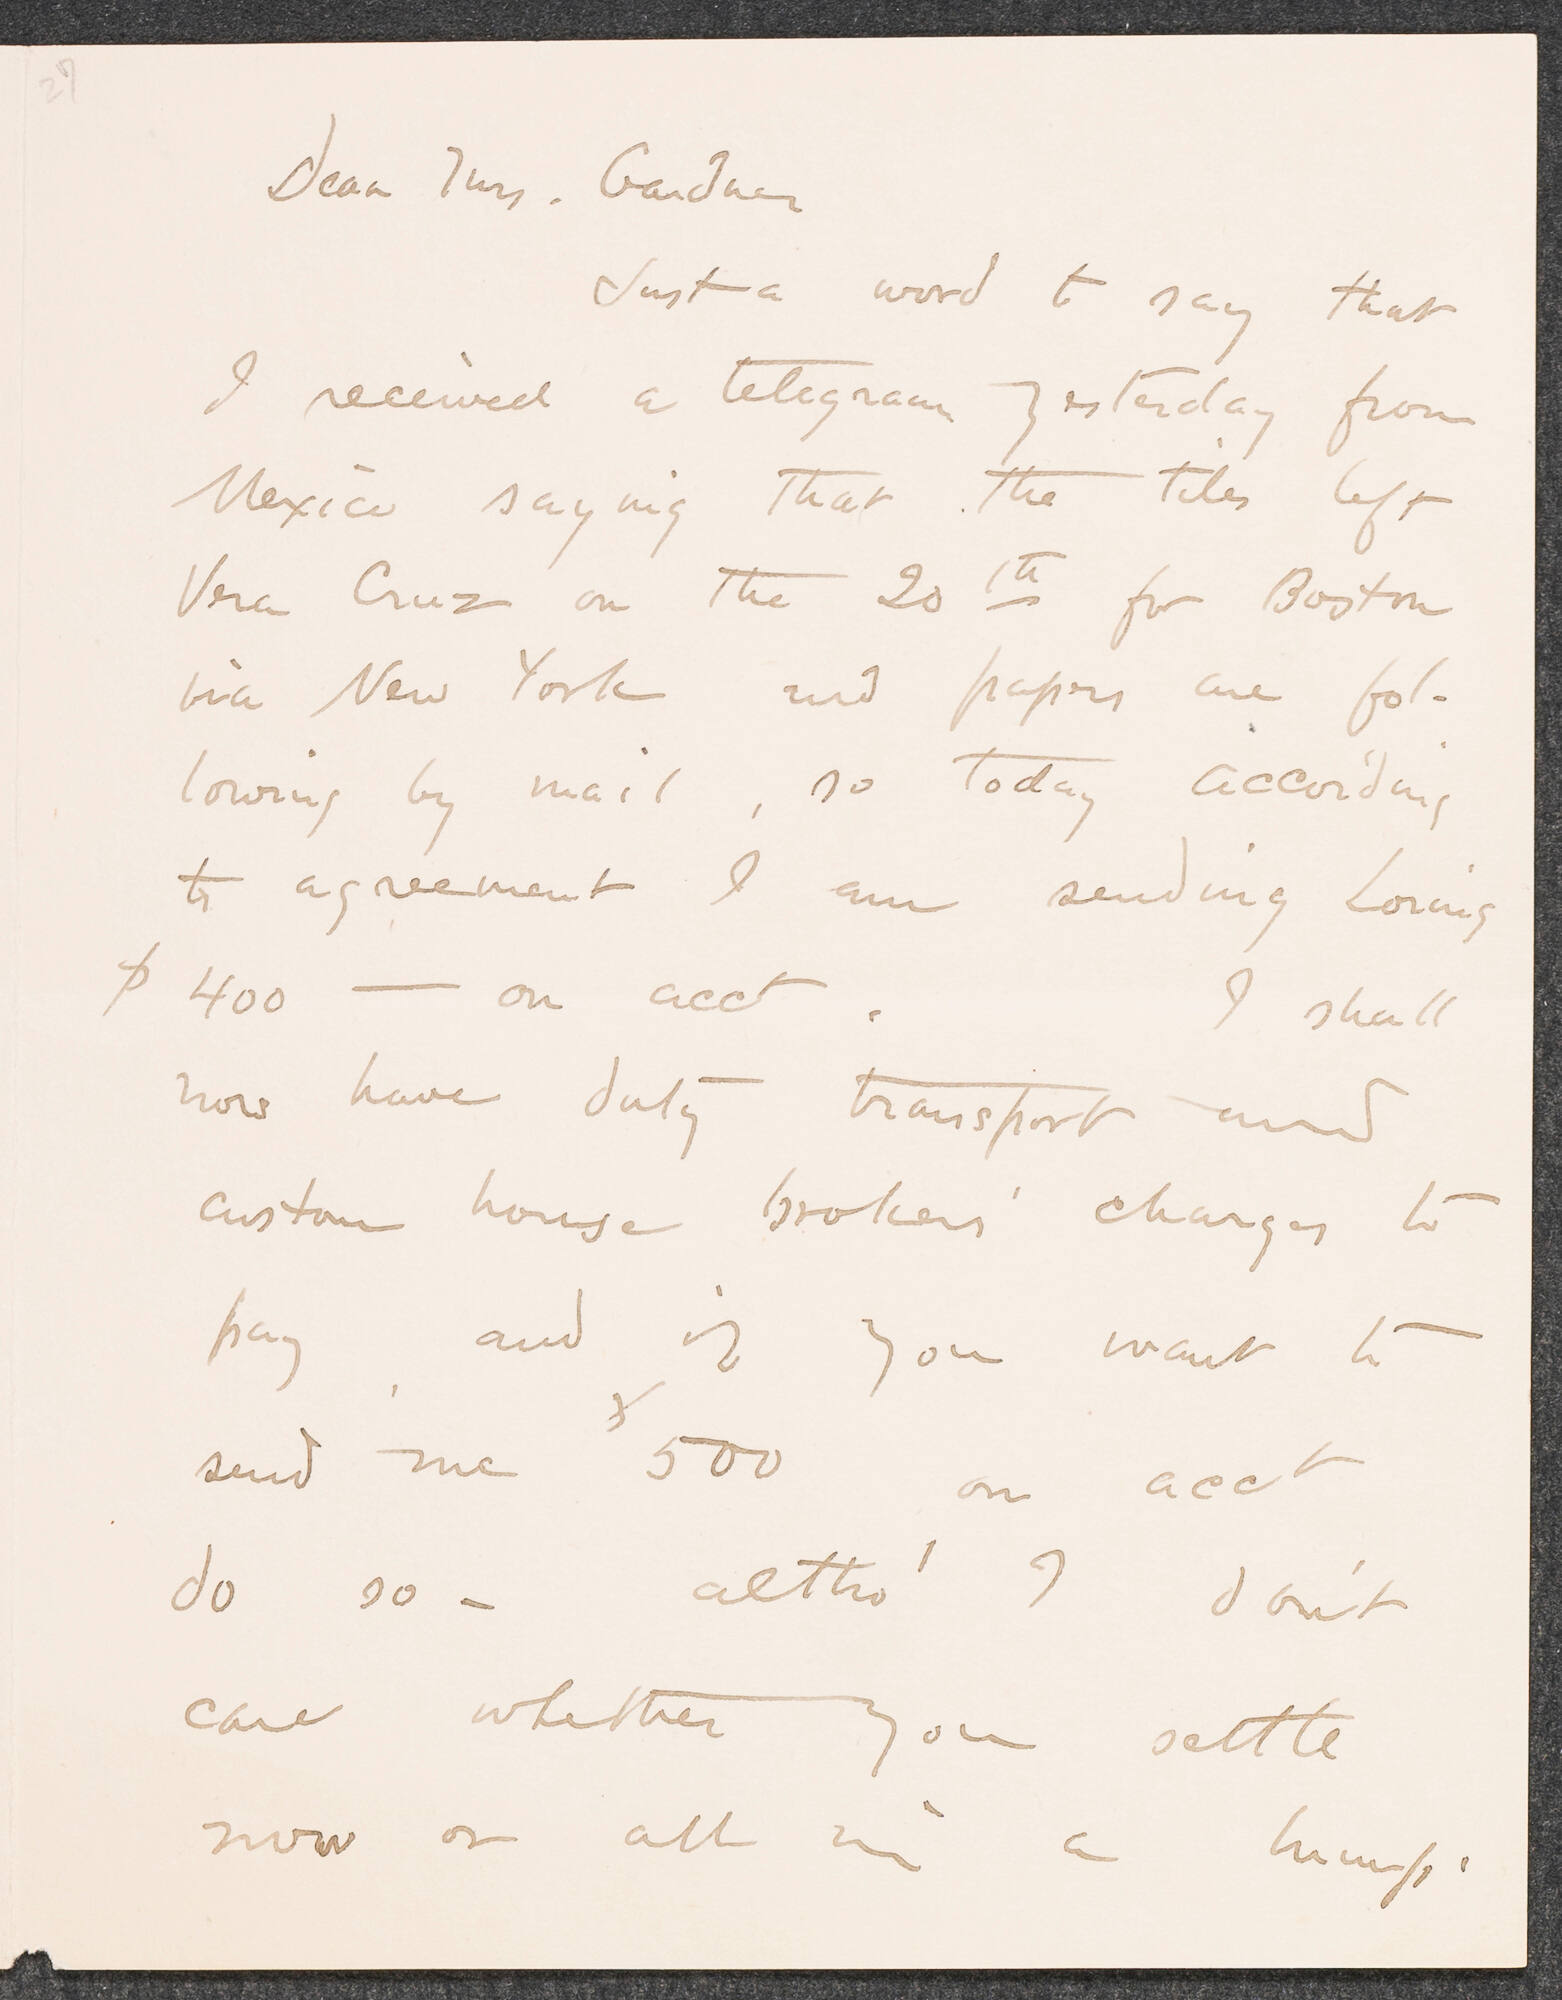 27
Dear Mrs. Gardner
Just a word to say that
I received a telegram yesterday from
Mexico saying that the tiles left
Vera Cruz on the 20th for Boston
via New York and papers are fol-
lowing by mail, so today according
to agreement I am sending Loring
$400 — on acct. I shall
now have duty transport and
custom house brokers' charges to
pay, and if you want to
send me $500 on acct
do so - altho' I don't
care whether you settle
now or all in a lump.